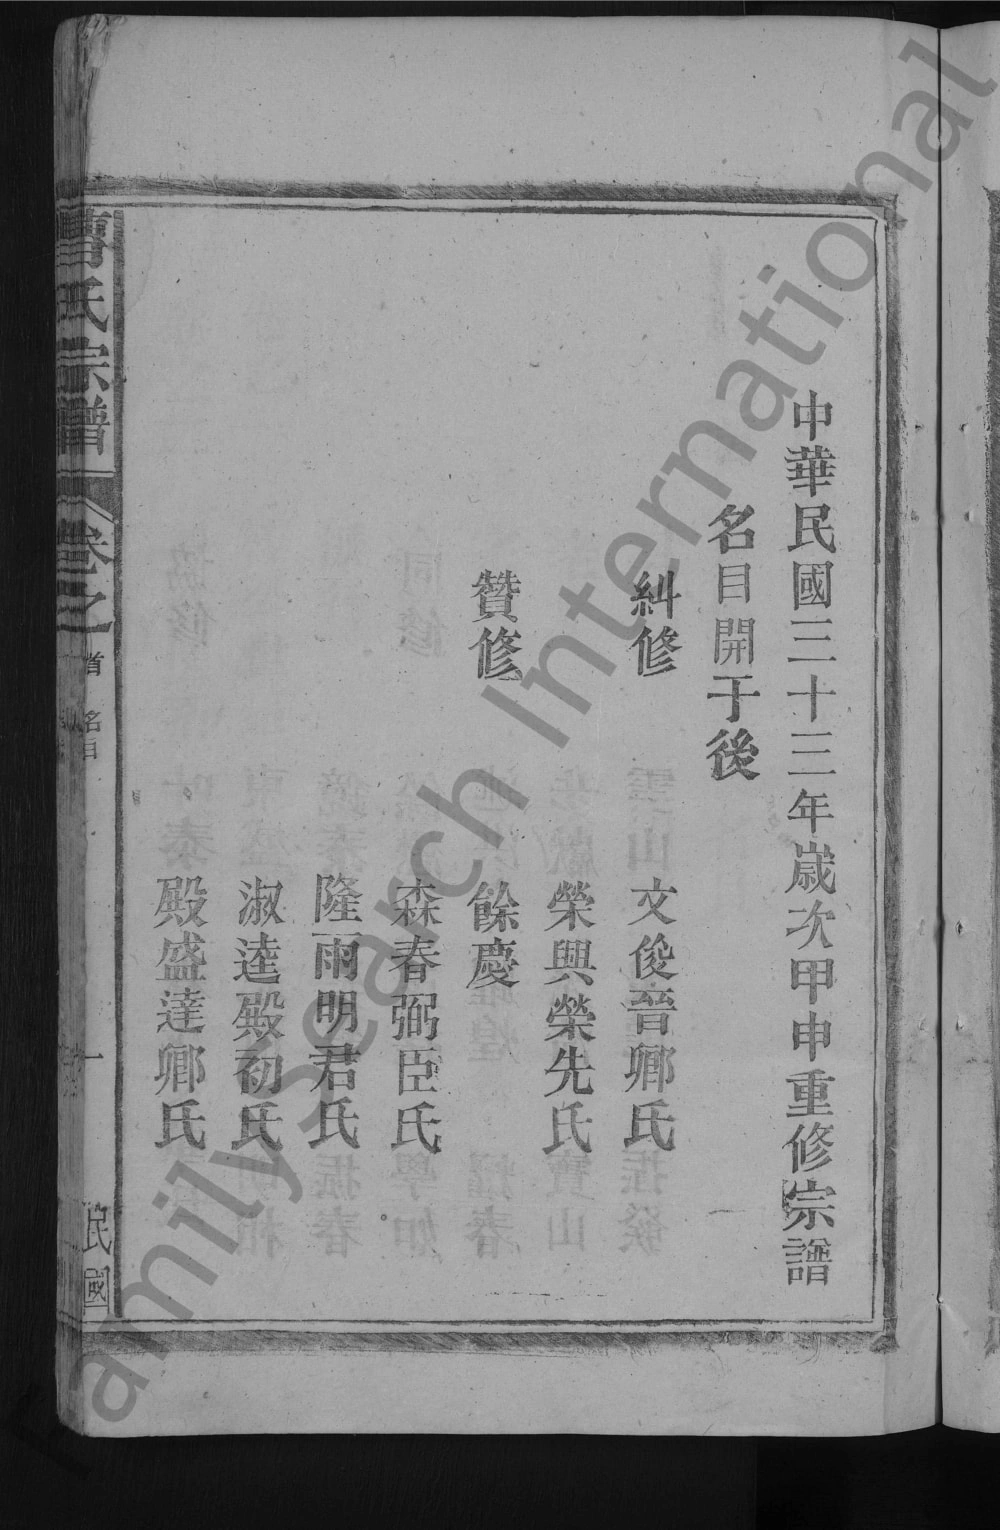 中華民國三十三年歲次甲申重修宗譜
名目開于後
糾修
文俊晉卿氏
榮興榮先氏
贊修
餘慶
森春弼臣氏
隆雨明君氏
淑逵殿初氏
殿盛達卿氏
曹氏宗譜
卷之
首
名目
一
民國
FamilySearch International